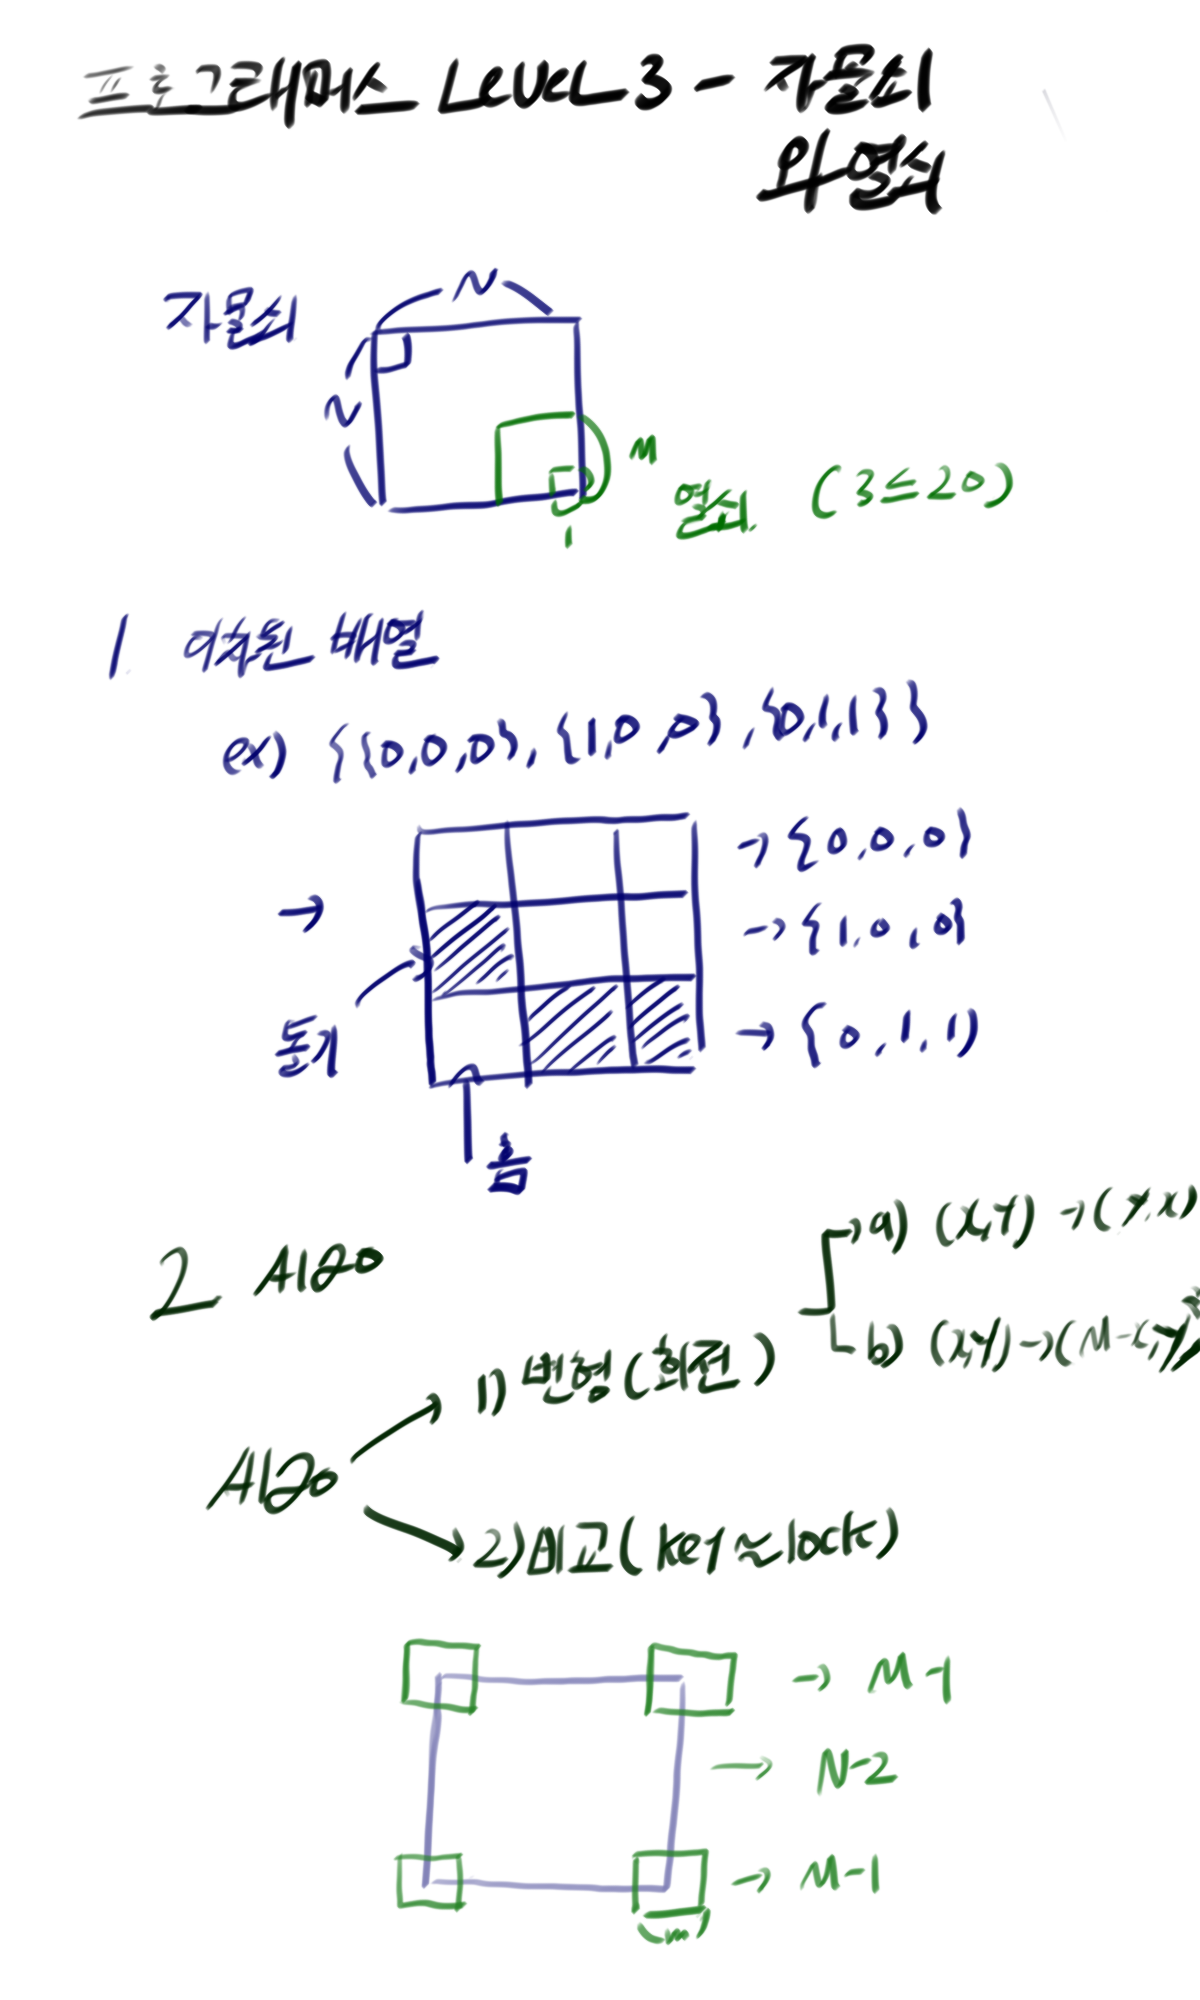 프로그래머스 Level 3 - 자물쇠
와 열쇠
자물쇠
N
N
M
열쇠 (3≤20)
1
1 이차원 배열
ex) {{0,0,0},{1,0,0},{0,1,1}}
→{0,0,0}
→
→{1,0,0}
돌기
→{0,1,1)
홈
2 Algo
→a) (x,y) →(y,x)
b) (x,y)→(M-x,y)
1) 변형(회전)
Algo
2)비교(key≈lock)
→ M-1
→ N-2
→ M-1
m